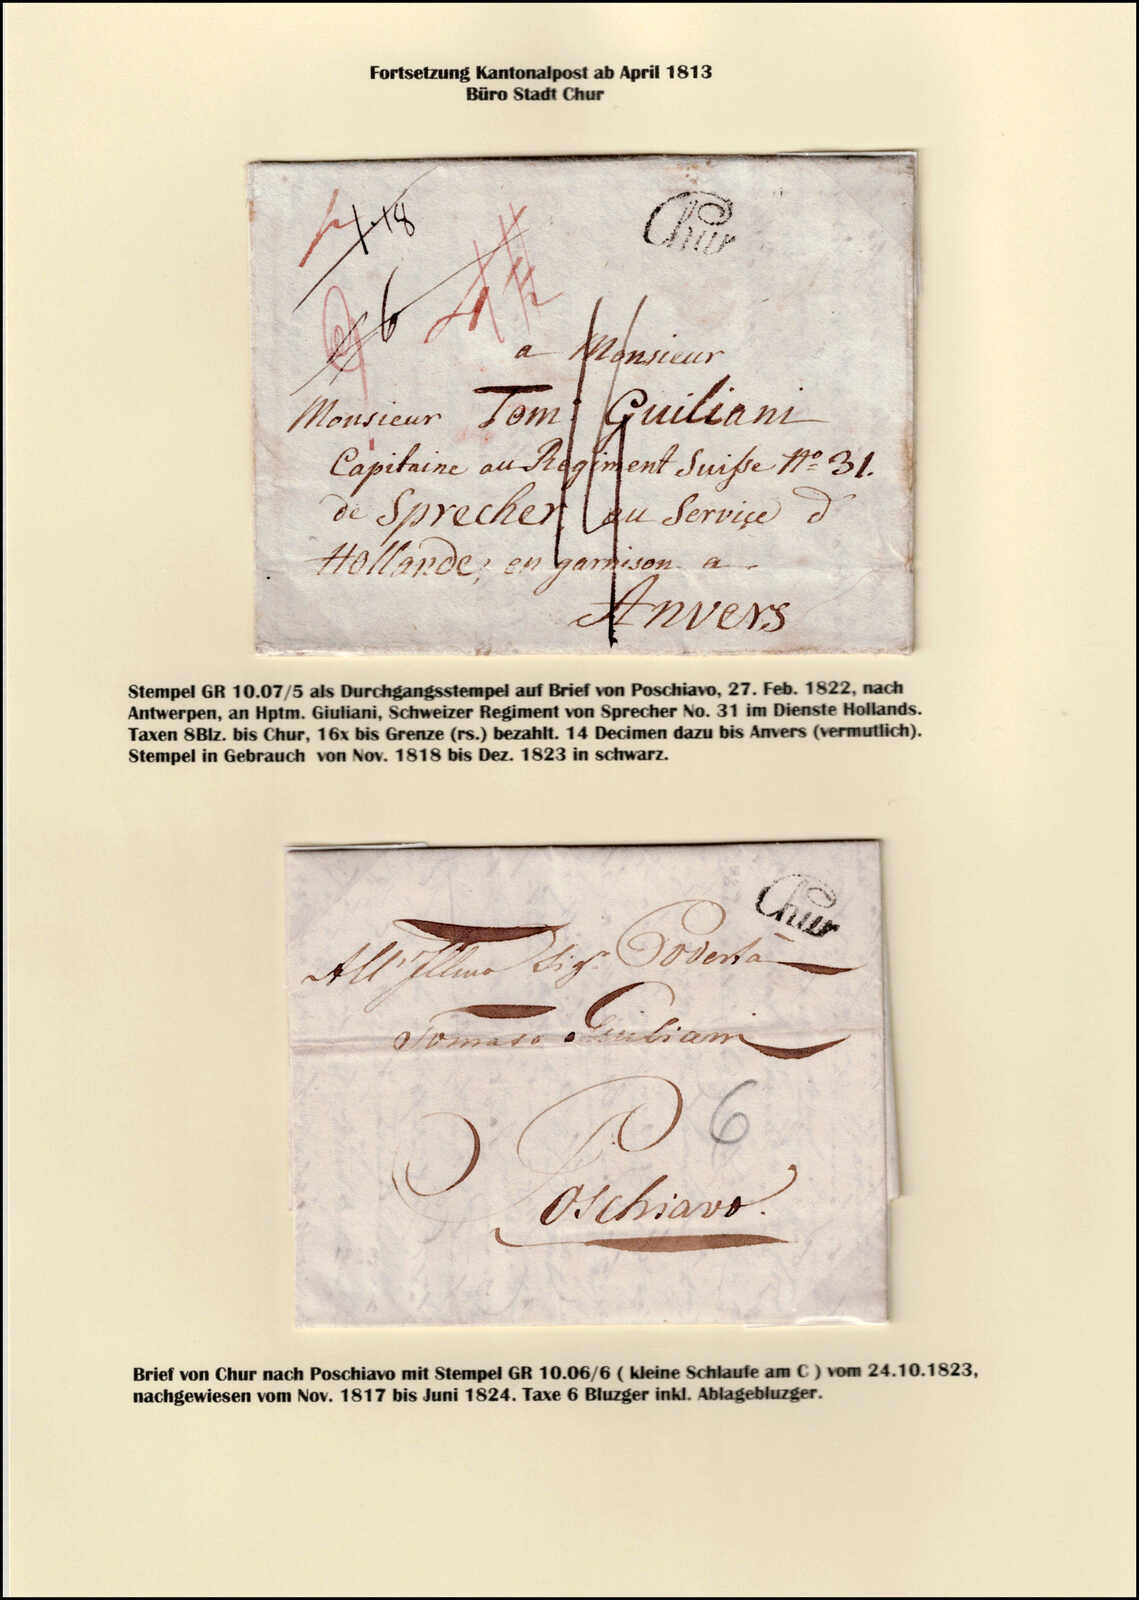 Fortsetzung Kantonalpost ab April 1813
Büro Stadt Chur
Chur
6
a Monsieur
Monsieur Tom: Guiliani
Capitaine au Regiment Suisse No 31.
de Sprecher, au Service d
Hollande, en garnison a
Anvers
Stempel GR 10.07/5 als Durchgangsstempel auf Brief von Poschiavo, 27. Feb. 1822, nach
Antwerpen, an Hptm. Giuliani, Schweizer Regiment von Sprecher No. 31 im Dienste Hollands.
Taxen 8Blz. bis Chur, 16x bis Grenze (rs.) bezahlt. 14 Decimen dazu bis Anvers (vermutlich).
Stempel in Gebrauch von Nov. 1818 bis Dez. 1823 in schwarz.
Chur
All' Illmo Sigr. Podestà
Tomaso Guiliani
6
Poschiavo.
Brief von Chur nach Poschiavo mit Stempel GR 10.06/6 ( kleine Schlaufe am C ) vom 24.10.1823,
nachgewiesen vom Nov. 1817 bis Juni 1824. Taxe 6 Bluzger inkl. Ablagebluzger.